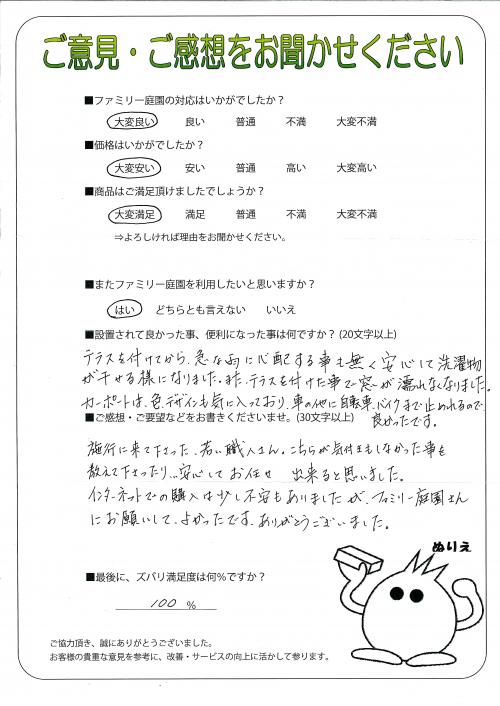 ご意見・ご感想をお聞かせください
■ファミリー庭園の対応はいかがでしたか？
大変良い 良い 普通 不満 大変不満
■価格はいかがでしたか？
大変安い 安い 普通 高い 大変高い
■商品はご満足頂けましたでしょうか？
大変満足 満足 普通 不満 大変不満
⇒よろしければ理由をお聞かせください。
■またファミリー庭園を利用したいと思いますか？
はい どちらとも言えない いいえ
■設置されて良かった事、便利になった事は何ですか？(20文字以上)
テラスを付けてから、急な雨に心配する事も無く安心して洗濯物
が干せる様になりました。また、テラスを付けた事で窓が濡れなくなりました。
カーポートは、色、デザインも気に入っており、車の他に自転車、バイクまで止めれるので
良かったです。
■ご感想・ご要望などをお書きくださいませ。(30文字以上)
施行に来て下さった、若い職人さん。こちらが気付きもしなかった事を
教えて下さったり…安心してお任せ 出来ると思いました。
インターネットでの購入は少し不安もありましたが、ファミリー庭園さん
にお願いして、よかったです。ありがとうございました。
ぬりえ
■最後に、ズバリ満足度は何％ですか？
100 ％
ご協力頂き、誠にありがとうございました。
お客様の貴重な意見を参考に、改善・サービスの向上に活かして参ります。